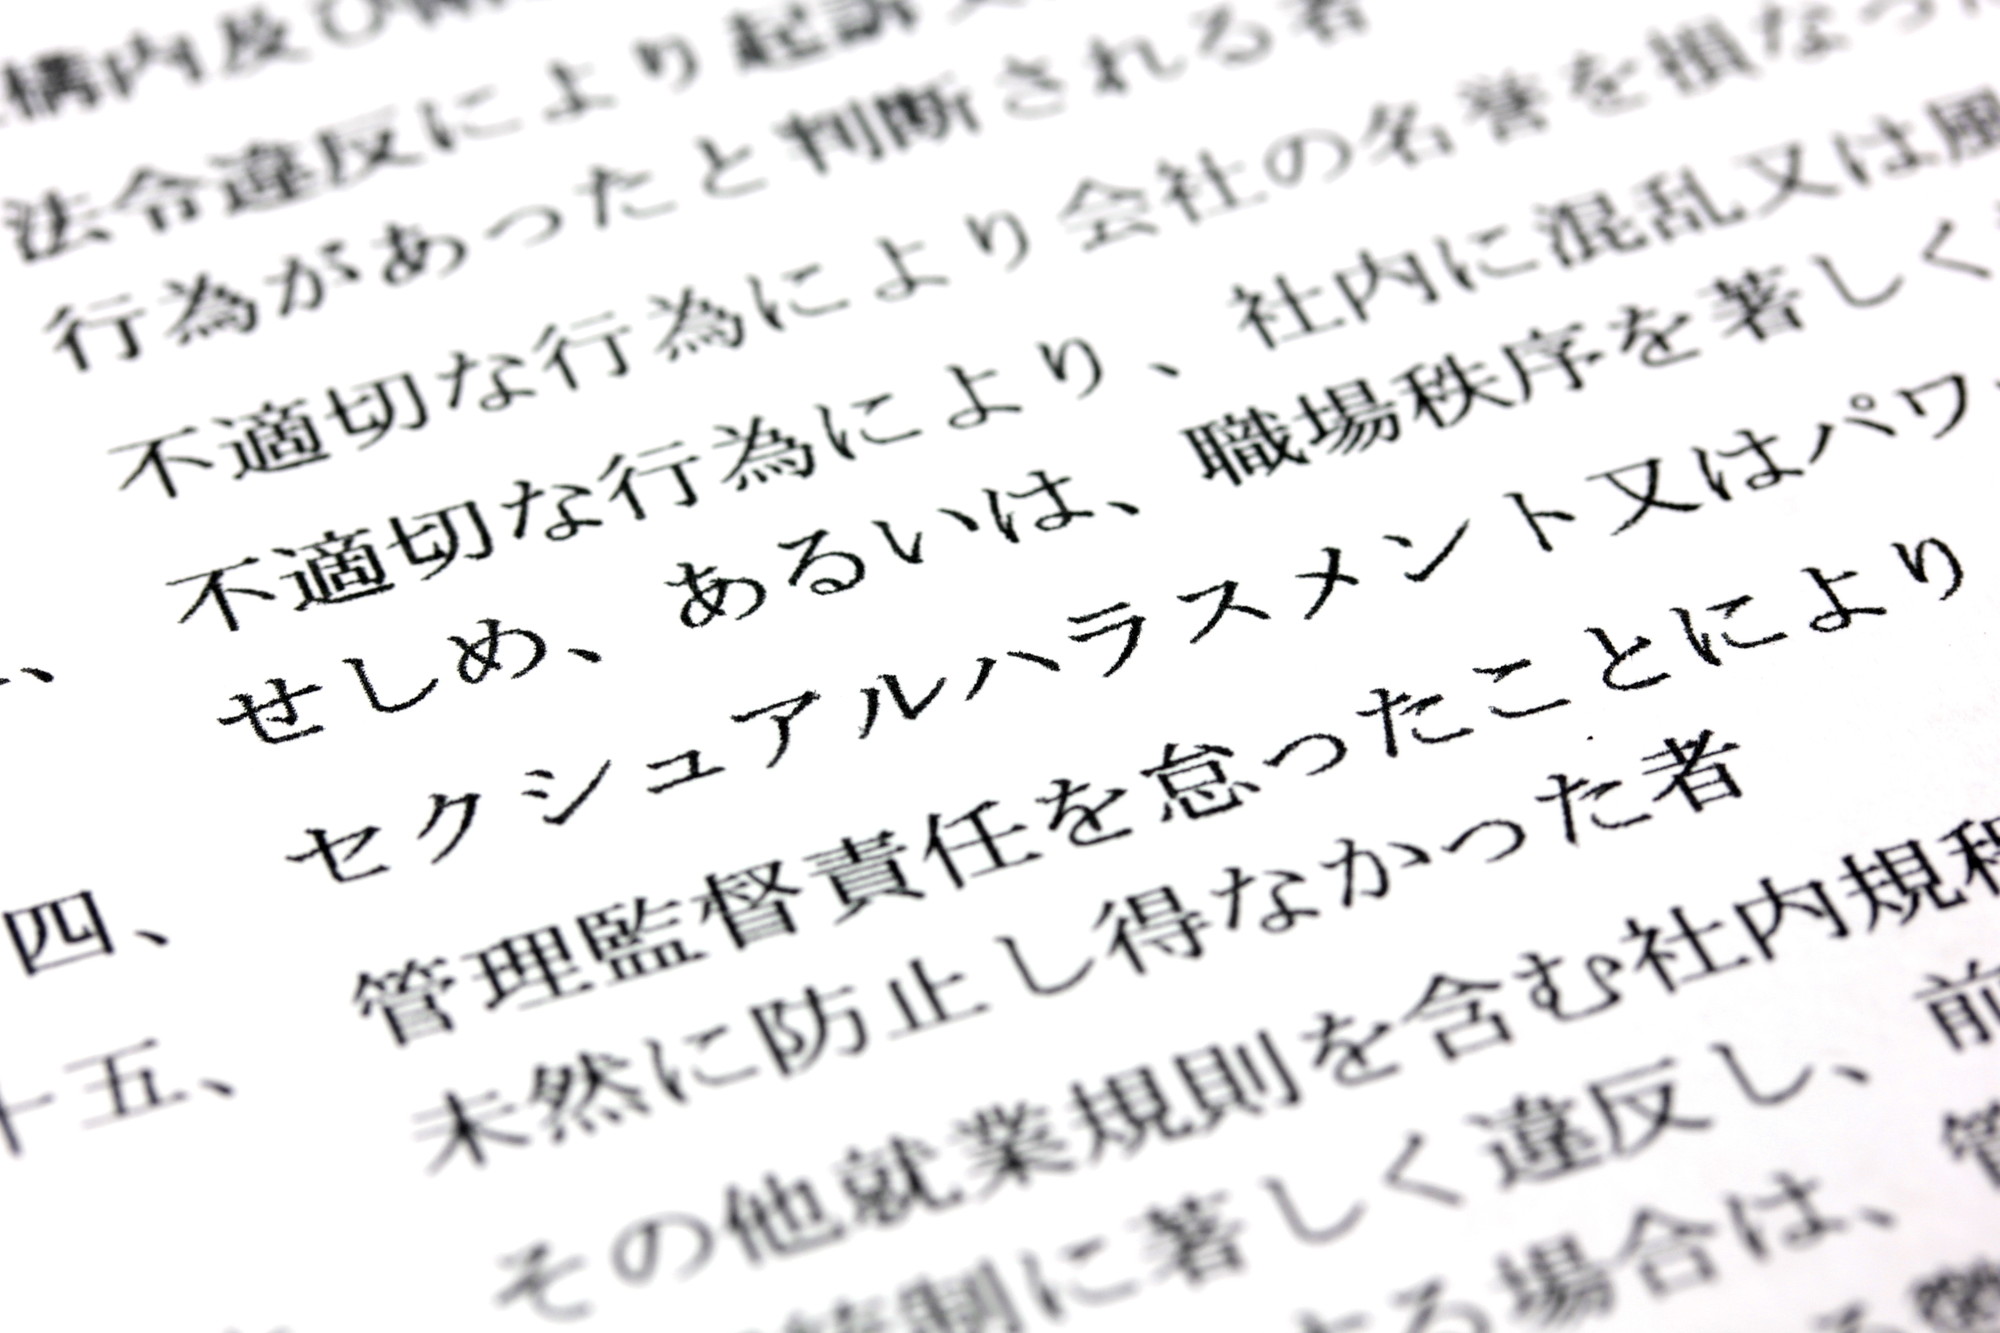 構内及び
法令違反により起訴
行為があったと判断される者
不適切な行為により会社の名誉を損なっ
不適切な行為により、社内に混乱又は風
せしめ、あるいは、職場秩序を著しく
セクシュアルハラスメント又はパワ
四、 管理監督責任を怠ったことにより
未然に防止し得なかった者
十五、 その他就業規則を含む社内規程
統制に著しく違反し、前
する場合は、管